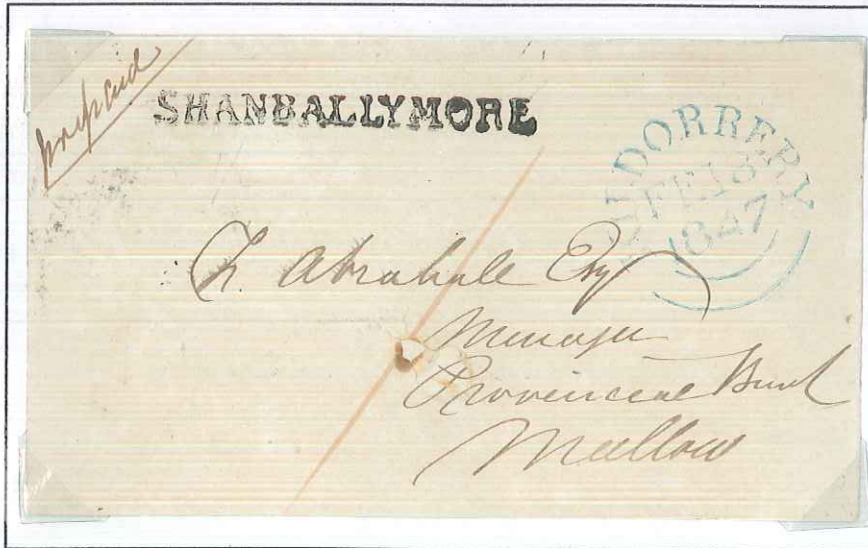 prepaid
SHANBALLYMORE
KILDORRERY
FE 18
1847
Abrahall Esq
Manager
Provincial Bank
Mallow